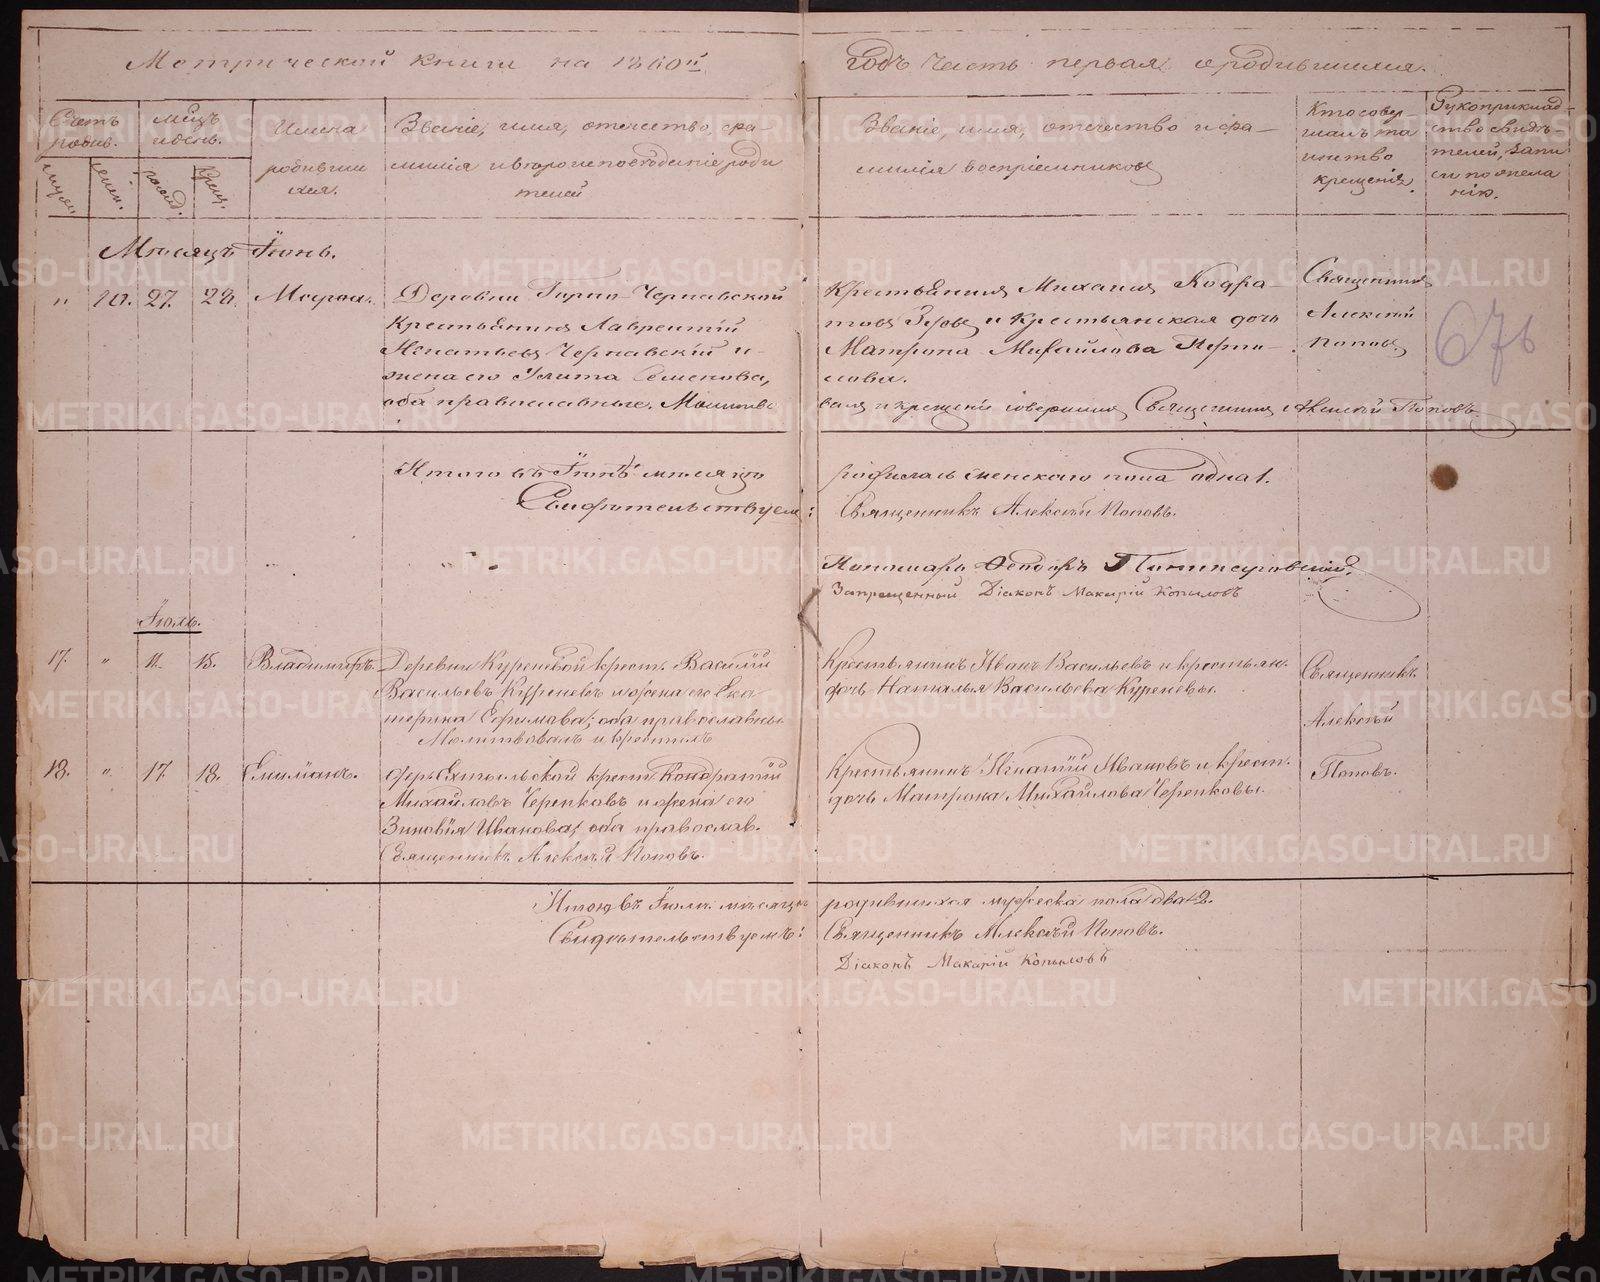 Метрической книги на 1860й
Годъ часть первая о родившихся.
Счетъ родив.
мужес.
женс.
Мѣсяцъ и день.
рожд.
крещ.
Имена
родивши
хся.
Званіе, имя, отчество, фа-
милія и вѣроисповѣданіе роди
телей
Званіе, имя, отчество и фа-
милія воспріемниковъ
Кто совер
шалъ та
инство
крещенія.
Рукоприклад-
ство свидѣ-
телей, запи
си по жела
нію.
Мѣсяцъ Іюнь.
" 20. 27. 28.
Деревни Чернавской
крестьянинъ Лаврентій
Игнатьевъ Чернавскій и
жена его Улита Семенова,
оба православные. Молитво
Крестьянинъ Михаилъ Кодра-
товъ и крестьянская дочь
Матрона Михайлова
Священникъ
Алексѣй
Поповъ.
676
валъ и крещеніе совершилъ Священникъ Алексѣй Поповъ.
Итого въ Іюнѣ мѣсяцѣ
родилась женскаго пола одна 1.
Свидѣтельствуемъ:
Священникъ Алексѣй Поповъ.
Пономарь Ѳеодоръ
Запрещенный Діаконъ Макарій Копыловъ
Іюль.
17. " 11. 15. Владимиръ.
Деревни Куреневой крест. Василій
Васильевъ Куреневъ и жена его Ека
терина Ефимова; оба православны.
Молитвовалъ и крестилъ
Крестьянинъ Иванъ Васильевъ и крестьян.
дочь Наталья Васильева Куреневы.
Священникъ
Алексѣй
Поповъ.
18. " 17. 18. Емиліанъ.
дер. крест. Кондратій
Михайловъ Черепковъ и жена его
Зиновія Иванова; оба православ.
Священникъ Алексѣй Поповъ.
Крестьянинъ Игнатій Ивановъ и крест.
дочь Матрона Михайлова Черепковы.
Итого въ Іюлѣ мѣсяцѣ
родившихся мужеска пола два 2.
Свидѣтельствуемъ:
Священникъ Алексѣй Поповъ.
Діаконъ Макарій Копыловъ
METRIKI.GASO-URAL.RU